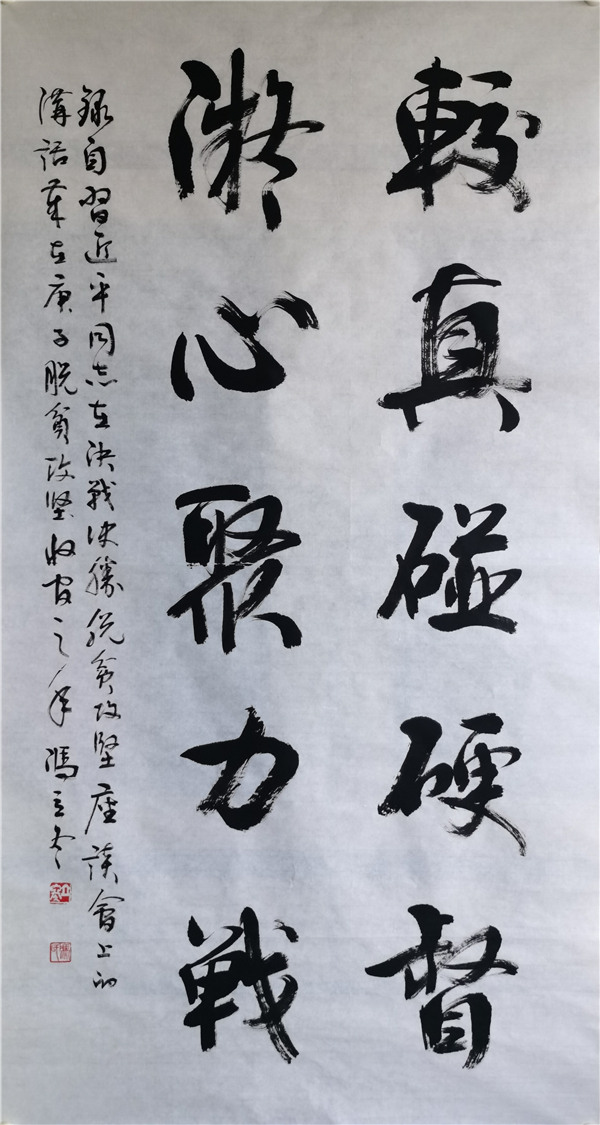 較真碰硬督
凝心聚力戰
錄自習近平同志在決戰決勝脫貧攻堅座談會上的
講話 在庚子脫貧攻堅收官之年 馮立冬